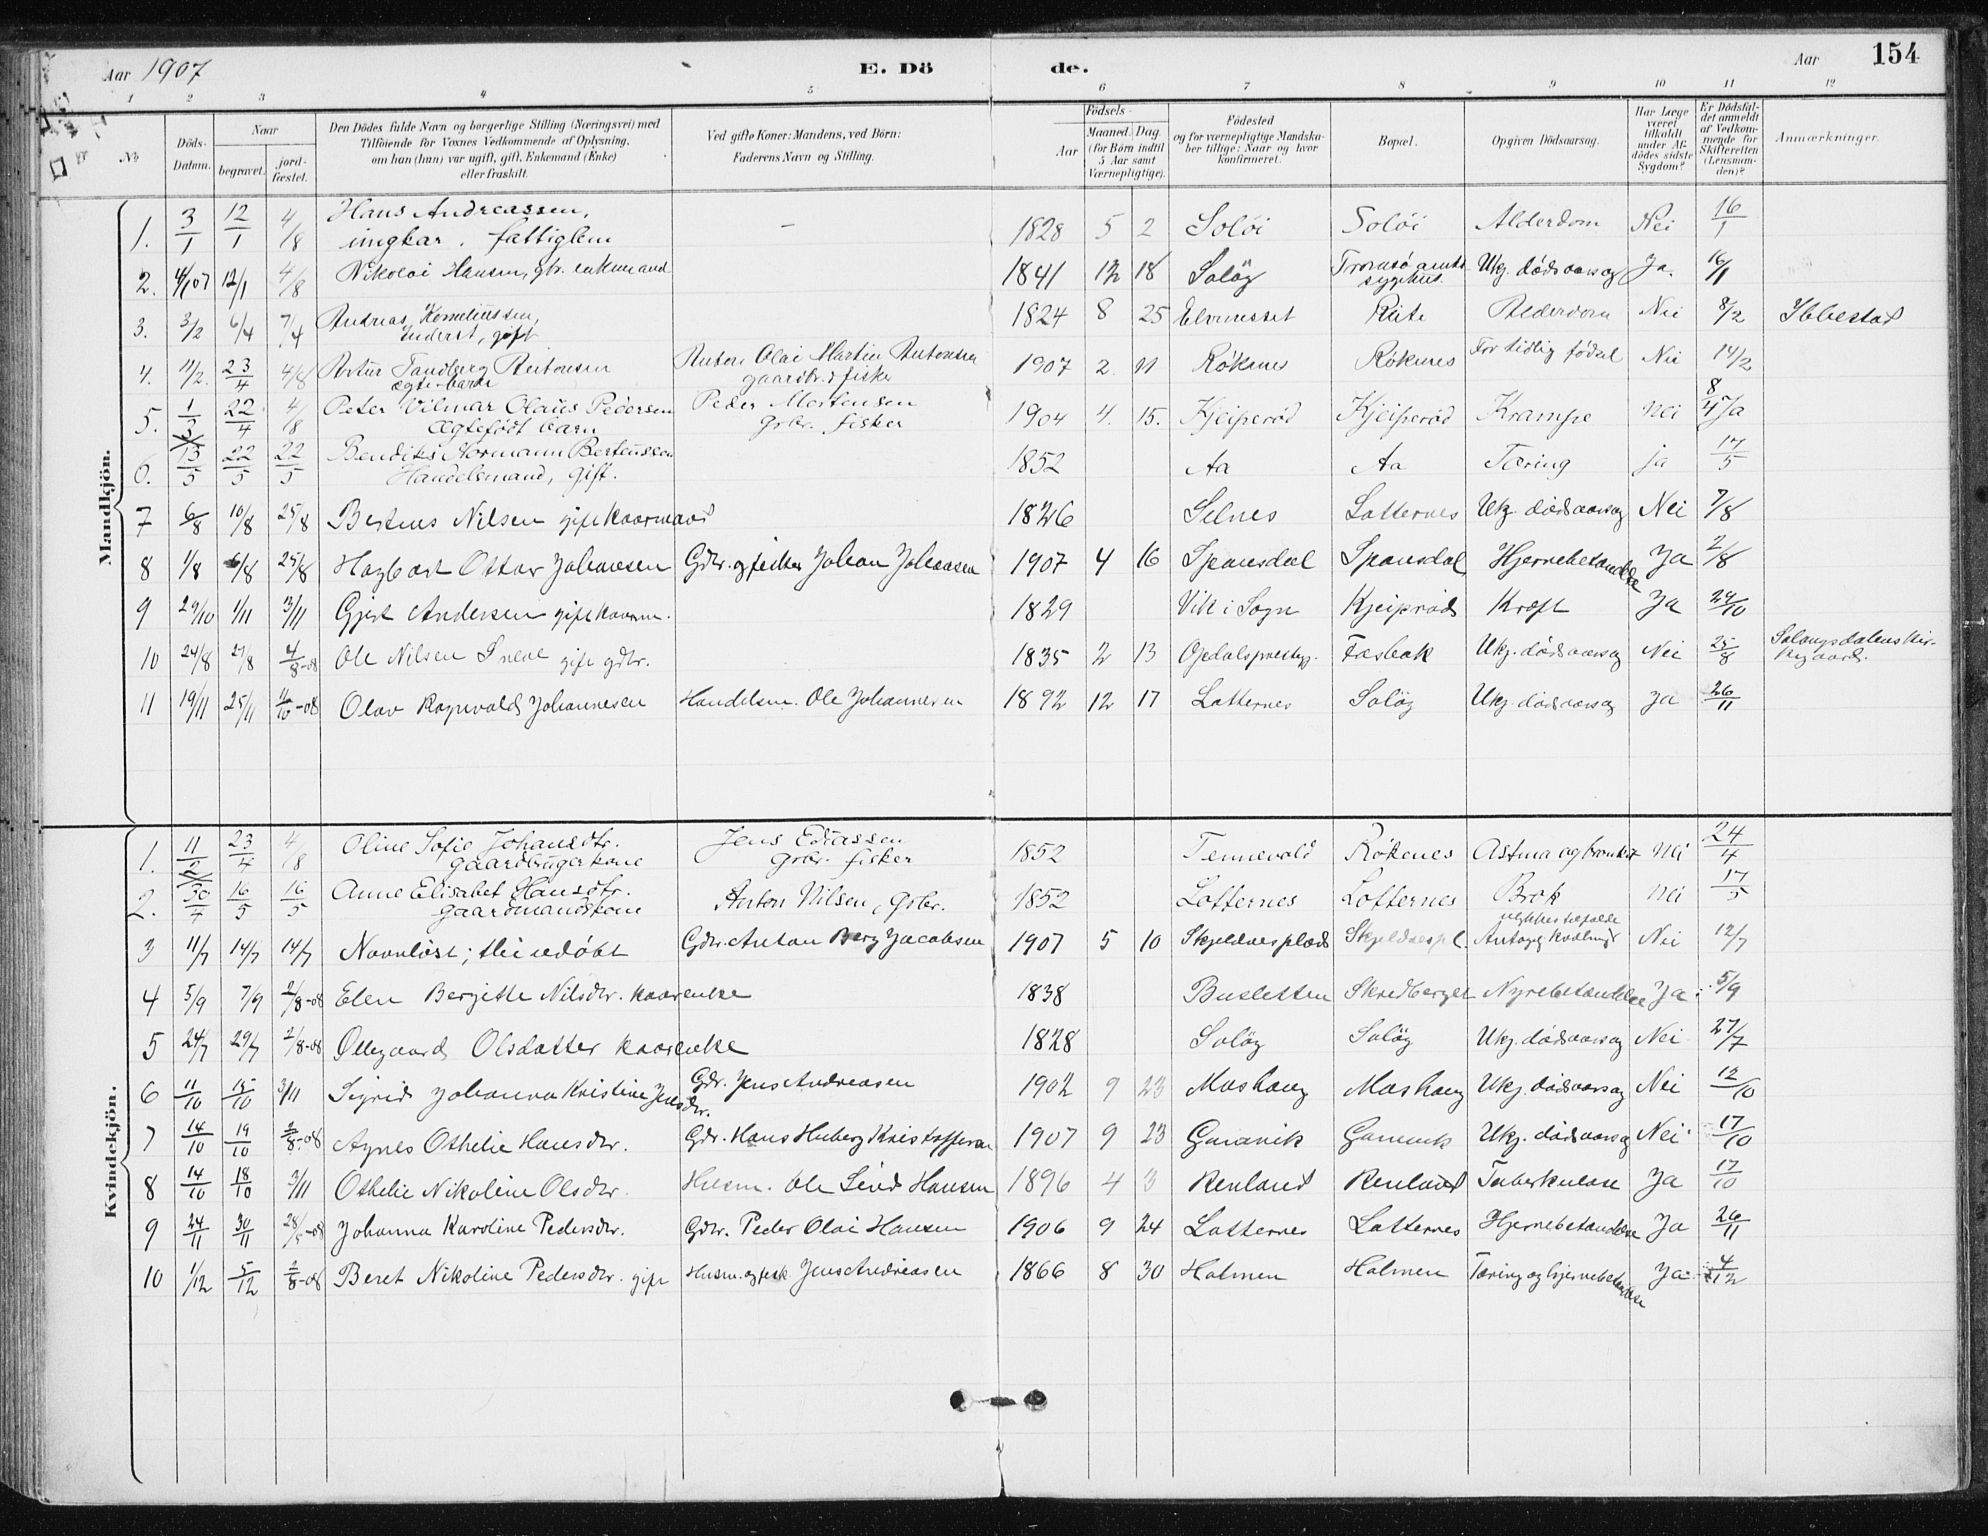 Aar 1907 E. Dö de. Aar 154
1 2 3 4 5 6 7 8 9 10 11 12
No.
Döds-Datum.
Naar
begravet.
jord-fæstet.
Den Dödes fulde Navn og borgerlige Stilling (Næringsvei) med
Tilföiende for Voxnes Vedkommende af Oplysning,
om han (hun) var ugift, gift, Enkemand (Enke)
eller fraskilt.
Ved gifte Koner: Mandens, ved Börn:
Faderens Navn og Stilling.
Födsels-
Aar
Maaned. Dag.
(for Börn indtil
5 Aar samt
Værnepligtige).
Födested
og for værnepligtige Mandska-
ber tillige: Naar og hvor
konfirmeret.
Bopæl.
Opgiven Dödsaarsag.
Har Læge
været
tilkaldt
under Af-
dödes sidste
Sygdom?
Er Dödsfal-
det anmeldt
af Vedkom-
mende for
Skifteretten
(Lensman-
den)?
Anmærkninger.
Mandkjön.
1. 3/1 12/1 4/8 Hans Andreassen, — 1828 5 2 Soløi Soløi Alderdom Nei 16/1
ungkar. fattiglem
2. 4/1 07 12/1 4/8 Nikolai Hansen, gbr. enkemand 1841 12 18 Soløy Tromsø amts sygehus. Ukj. dødsaarsag Ja. 16/1
3. 3/2 6/4 7/4 Andreas Korneliussen, 1824 8 25 Elvenesset Alderdom Nei 8/2 Ibbestad
Inderst, gift
4. 11/2. 23/4 4/8 Artur Sandberg Antonsen Anton Olai Martin Antonsen 1907 2. 11 Røkenes Røkenes For tidlig födsel Nei 14/2
ægte barn gaardbr. & fisker
5. 1/3 22/4 4/8 Peter Vilmar Olaus Pedersen Peder Mortensen 1904 4. 15. Kjeiperød Kjeiperød Krampe nei 8/4 Ja
Ægtefødt barn Grbr. fisker
6. 13/5 22/5 22/5 Bendiks Normann Berteussen 1852 Aa Aa Tæring ja 17/5
Handelsmand, gift.
7 6/8 10/8 25/8 Berteus Nilsen gift kaarmand 1826 Selnes Lotternes Ukj. dødsaarsag Nei 7/8
8 1/8 6/8 25/8 Hagbart Ottar Johansen Gdbr. og fisker Johan Johansen 1907 4 16 Spansdal Spansdal Hjernebetændelse Ja 2/8
9 29/10 1/11 3/11 Gjert Andersen gift kaarm. 1829 Vik i Sogn Kjeiprød Kræft Ja 29/10
10 24/8 27/8 4/8-08 Ole Nilsen gift gdbr. 1835 2 13 Opdalsprestegj. Fosbak Ukj. dødsaarsag Nei 25/8 Salangsdalens kir-
kegaard.
11 19/11 25/11 11/10-08 Olav Ragnvald Johannesen Handelsm. Ole Johannesen 1892 12 17 Lotternes Soløy Ukj. dødsaarsag Ja 26/11
Kvindekjön.
1. 11/2 23/4 4/8 Oline Sofie Johansdtr. Jens Esaiassen 1852 Tennevold Røkenes Astma og bronkit nei 24/4
gaardbrugerkone Grbr. fisker
2. 30/4 16/5 16/5 Anne Elisabet Hansdtr. Anton Nilsen, Grbr. 1852 Lotternes Lotternes Brok nei 17/5
gaardmandskone
3 11/7 14/7 14/7 Navnløst; udøbt Gdbr. Anton Berg Jacobsen 1907 5 10 Skjeldnesplads Skjeldnespl. Antagelig kvælning Nei 12/7
4 5/9 7/9 2/8-08 Elen Bergitte Nilsdtr. kaarenke 1838 Busletten Skredberget Nyrebetændelse Ja. 5/9
5 24/7 29/7 2/8-08 Øllegaard Olsdatter kaarenke 1828 Soløy Soløy Ukj. dødsaarsag Nei 27/7
6 11/10 15/10 3/11 Sigrid Johanna Kristine Jensdtr. Gdr. Jens Andreasen 1902 9 23 Moshaug Moshaug Ukj. dødsaarsag Nei 12/10
7 14/10 19/10 2/8-08 Agnes Othelie Hansdtr. Gdr. Hans Huberg Kristoffersen 1907 9 23 Garavik Garavik Ukj. dødsaarsag Nei 17/10
8 14/10 18/10 3/11 Othelie Nikoline Olsdtr. Husm. Ole Lind Hansen 1896 4 3 Renland Renland Tuberkulose Ja 17/10
9 24/11 30/11 28/5-08 Johanna Karoline Pedersdtr. Gdbr. Peder Olai Hansen 1906 9 24 Lotternes Lotternes Hjernebetændelse Ja 26/11
10 1/12 5/12 2/8-08 Beret Nikoline Pedersdtr. gift Husm. og fisk Jens Andreasen 1866 8 30 Holmen Holmen Tæring og hjernebetændelse Ja 4/12